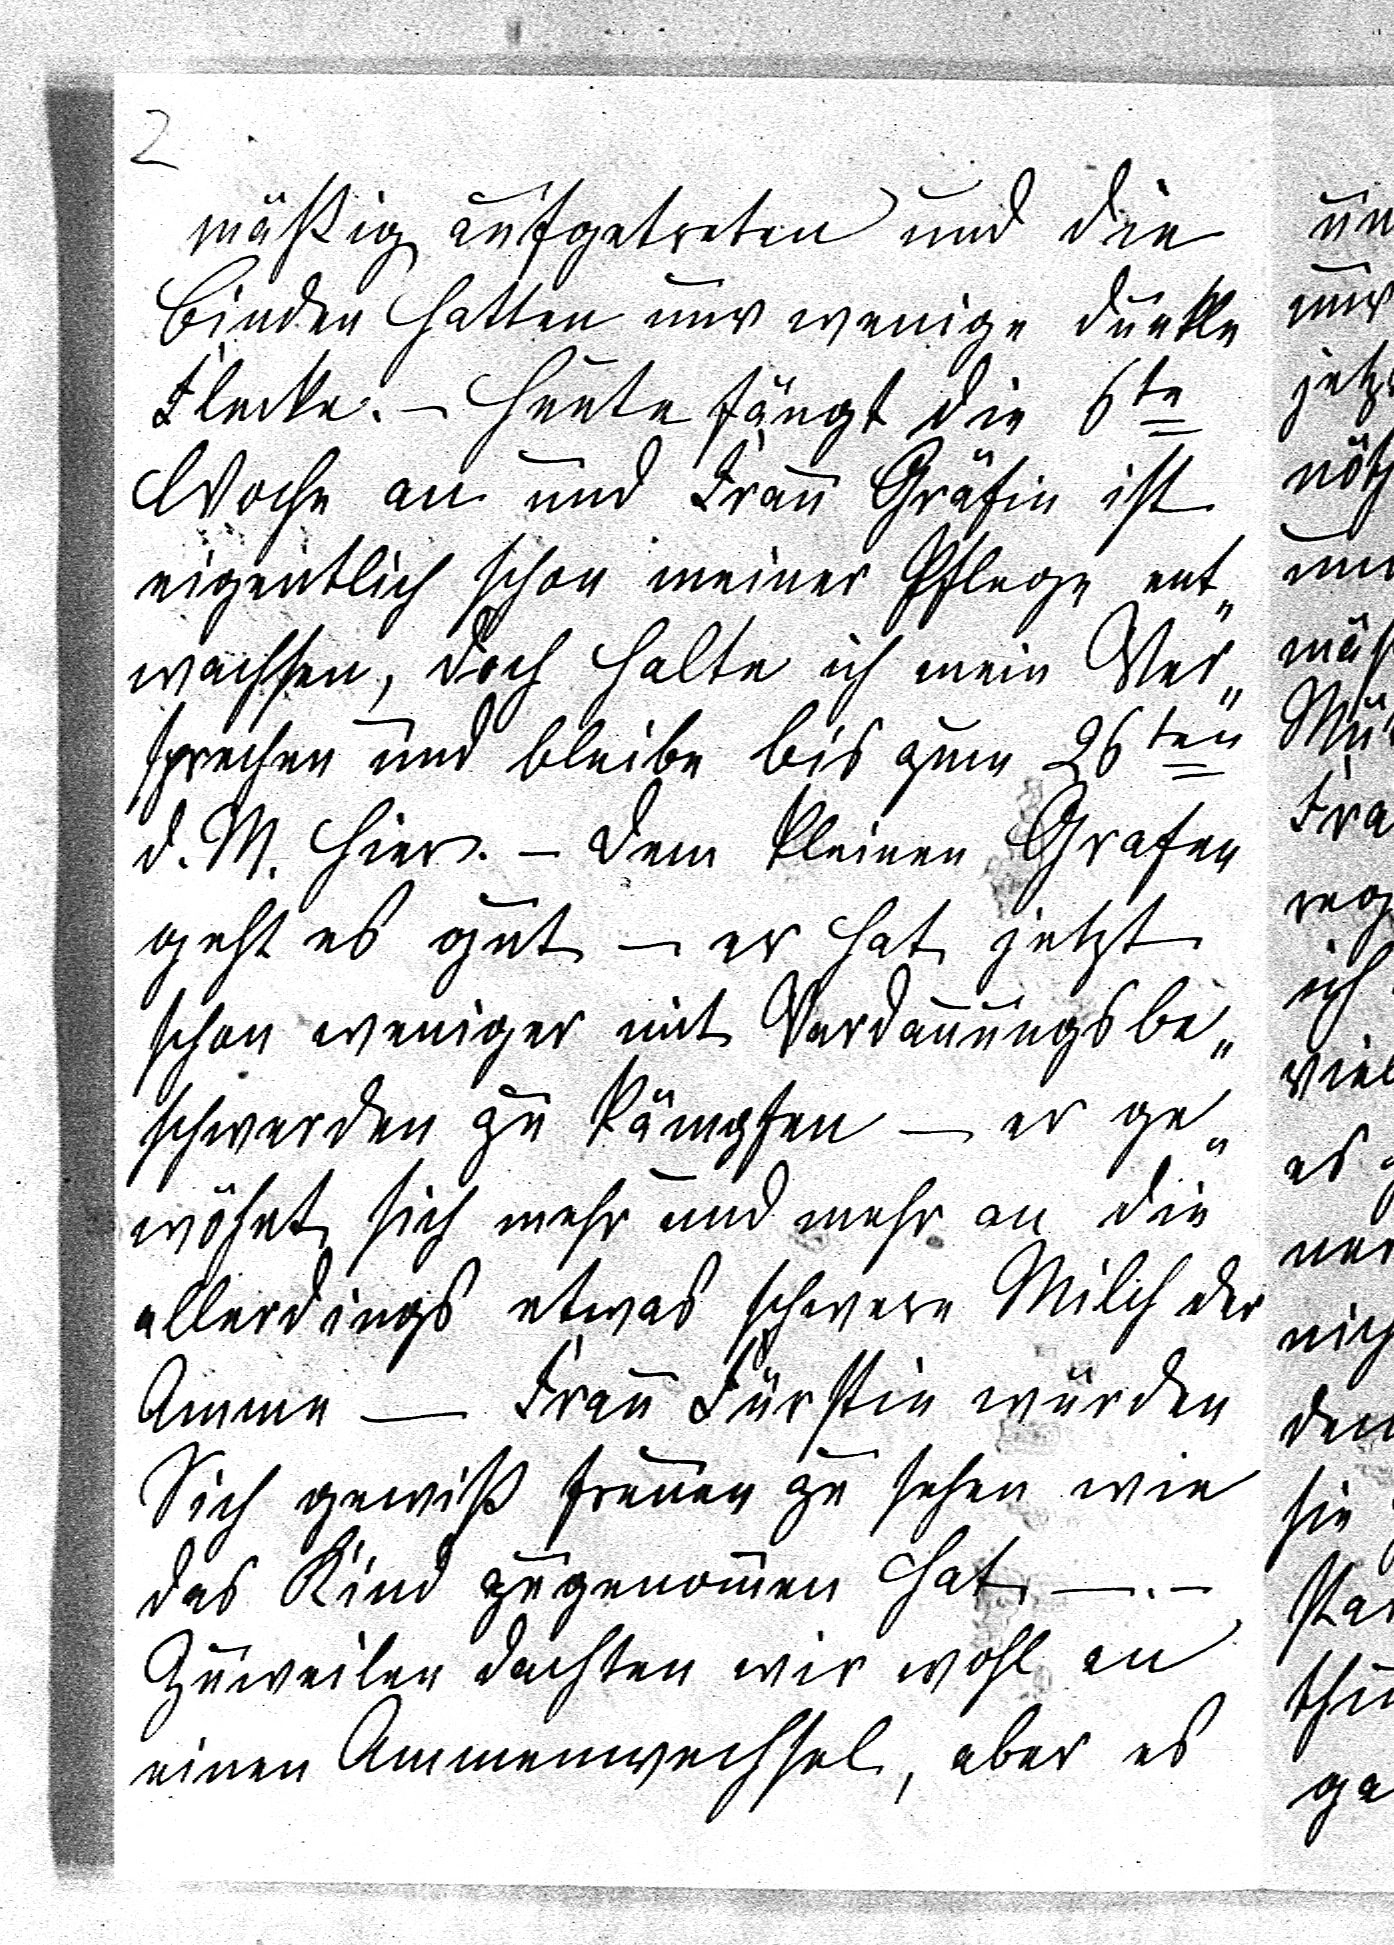 2
mäßig aufgetreten und die
Binden hatten nur wenige dunkle
Flecke. – Heute fängt die 6te
Woche an und Frau Gräfin ist
eigentlich schon meiner Pflege ent„
wachsen, doch halte ich mein Ver„
sprechen und bleibe bis zum 26ten
d. M. hier. – Dem kleinen Grafen
geht es gut – er hat jetzt
schon weniger mit Verdauungsbe„
schwerden zu kämpfen – er ge„
wöhnt sich mehr und mehr an die
allerdings etwas schwere Milch der
Amme — Frau Fürstin würden
Sich gewiß freuen zu sehen wie
das Kind zugenom̄en hat —. –
Zuweilen dachten wir wohl an
einen Ammenwechsel, aber es